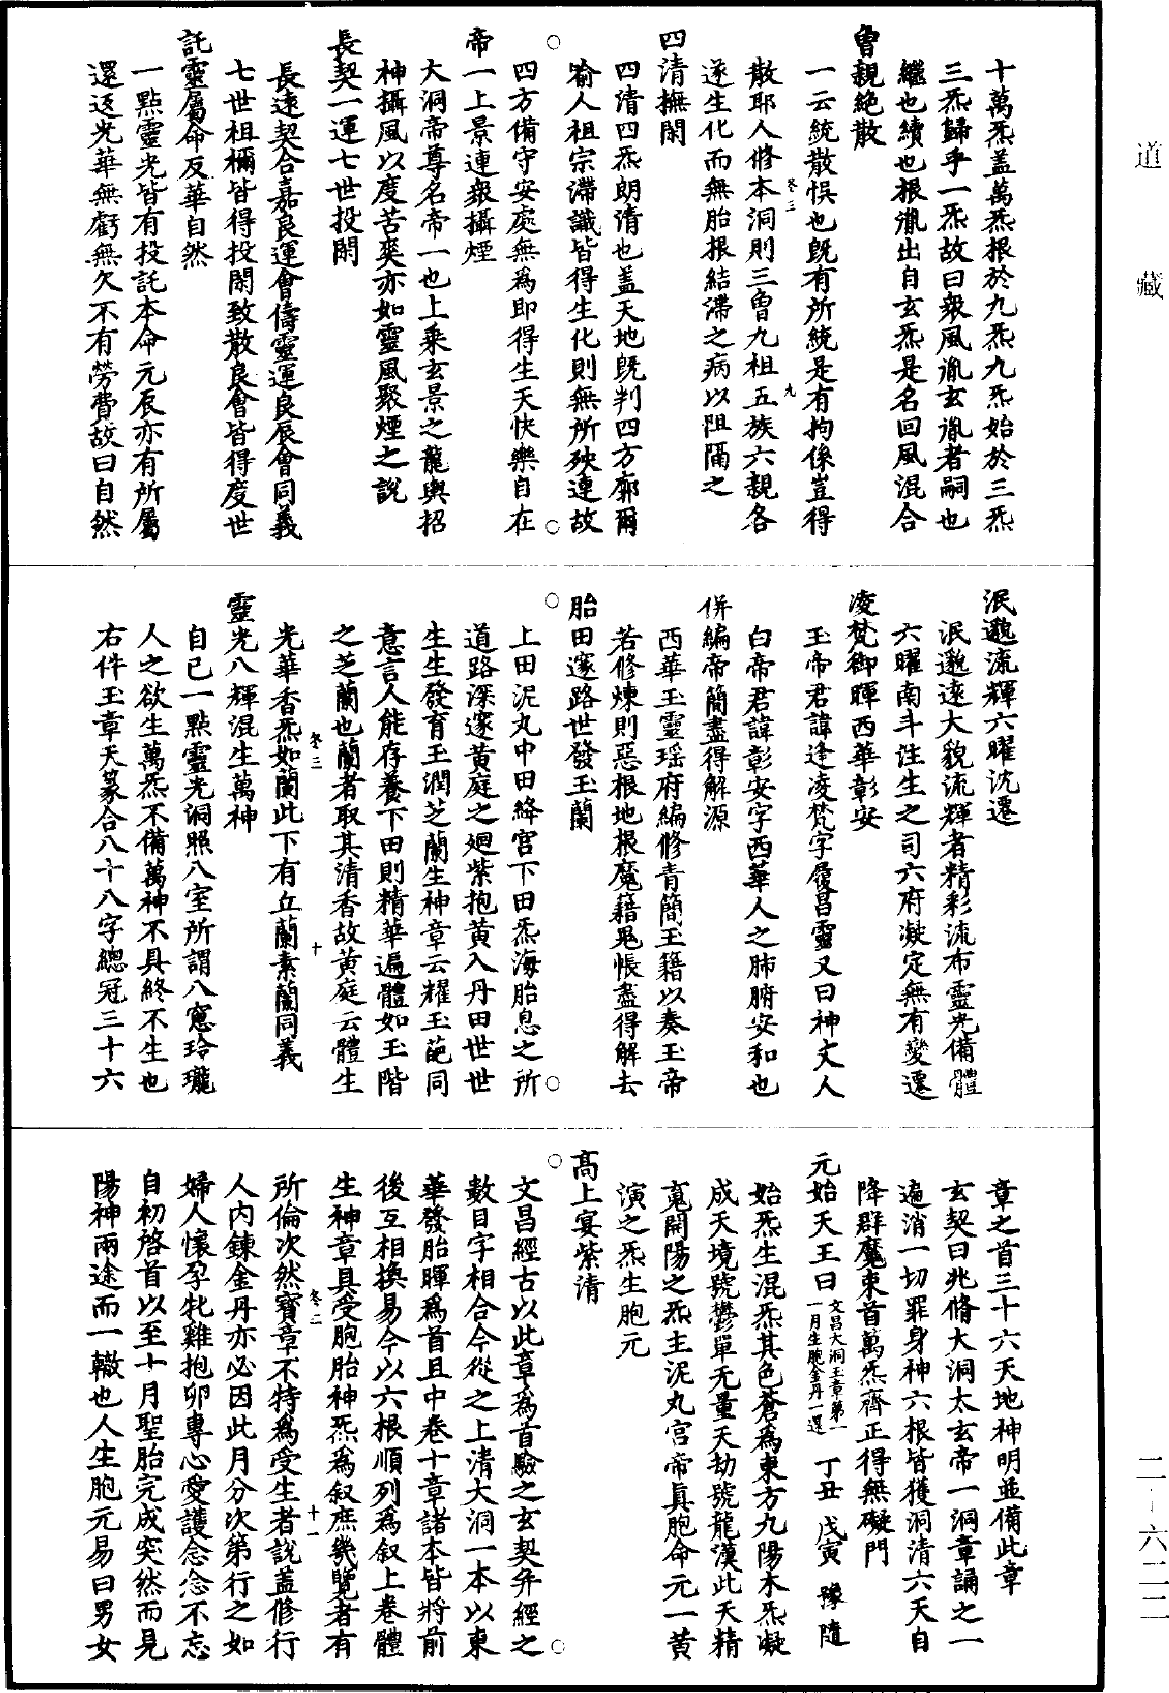 道藏
十萬炁蓋萬炁根於九炁九炁始於三炁
三炁歸乎一炁故曰衆風胤玄胤者嗣也
繼也續也根胤出自玄炁是名回風混合
曾親絶散
一云統散悞也旣有所統是有拘係豈得
散耶人修本洞則三曾九祖五族六親各
遂生化而無胎根結滯之病以阻隔之
四清撫閑
四清四炁朗清也蓋天地旣判四方廓爾
喻人祖宗滯識皆得生化則無所殃連故
四方備守安處無爲即得生天快樂自在
帝一上景連衆攝煙
大洞帝尊名帝一也上乘玄景之龍輿招
神攝風以度苦爽亦如靈風聚煙之說
長契一運七世投閑
長遠契合嘉良運會儔靈運良辰會同義
七世祖禰皆得投閑致散良會皆得度世
託靈屬命反華自然
一點靈光皆有投託本命元辰亦有所屬
還返光華無虧無欠不有勞費故曰自然
泯邈流輝六曜沈遷
泯邈遠大貌流輝者精彩流布靈光備體
六曜南斗注生之司六府凝定無有變遷
凌梵御暉西華彰安
玉帝君諱逢凌梵字履昌靈又曰神丈人
白帝君諱彰安字西華人之肺腑安和也
併編帝簡盡得解源
西華玉靈瑶府編修青簡玉籍以奏玉帝
若修煉則惡根地根魔籍鬼帳盡得解去
胎田邃路世發玉蘭
上田泥丸中田絳宫下田炁海胎息之所
道路深邃黄庭之廻紫抱黄入丹田世世
生生發育玉潤芝蘭生神章云耀玉葩同
意言人能存養下田則精華遍體如玉階
之芝蘭也蘭者取其清香故黄庭云體生
光華香炁如蘭此下有丘蘭素蘭同義
靈光八輝混生萬神
自己一點靈光洞照八室所謂八窻玲瓏
人之欲生萬炁不備萬神不具終不生也
右件玉章天篆合八十八字總冠三十六
章之首三十六天地神明並備此章
玄契曰兆脩大洞太玄帝一洞章誦之一
遍消一切罪身神六根皆獲洞清六天自
降群魔束首萬炁齊正得無礙門
元始天王曰 文昌大洞玉章第一 一月生胞金丹一還 丁丑 戊寅 豫隨
始炁生混炁其色蒼爲東方九陽木炁凝
成天境號鬱單无量天劫號龍漢此天精
嵬開陽之炁主泥丸宫帝眞胞命元一黄
演之炁生胞元
高上宴紫清
文昌經古以此章爲首驗之玄契弁經之
數目字相合今從之上清大洞一本以東
華發胎暉爲首且中卷十章諸本皆將前
後互相換易今以六根順列爲叙上卷體
生神章具受胞胎神炁爲叙庶幾覽者有
所倫次然寶章不特爲受生者說蓋修行
人内鍊金丹亦必因此月分次第行之如
婦人懷孕牝雞抱卵專心愛護念念不忘
自初啓首以至十月聖胎完成突然而見
陽神兩途而一轍也人生胞元易曰男女
冬三
九
冬三
十
冬三
十一
二-六二二